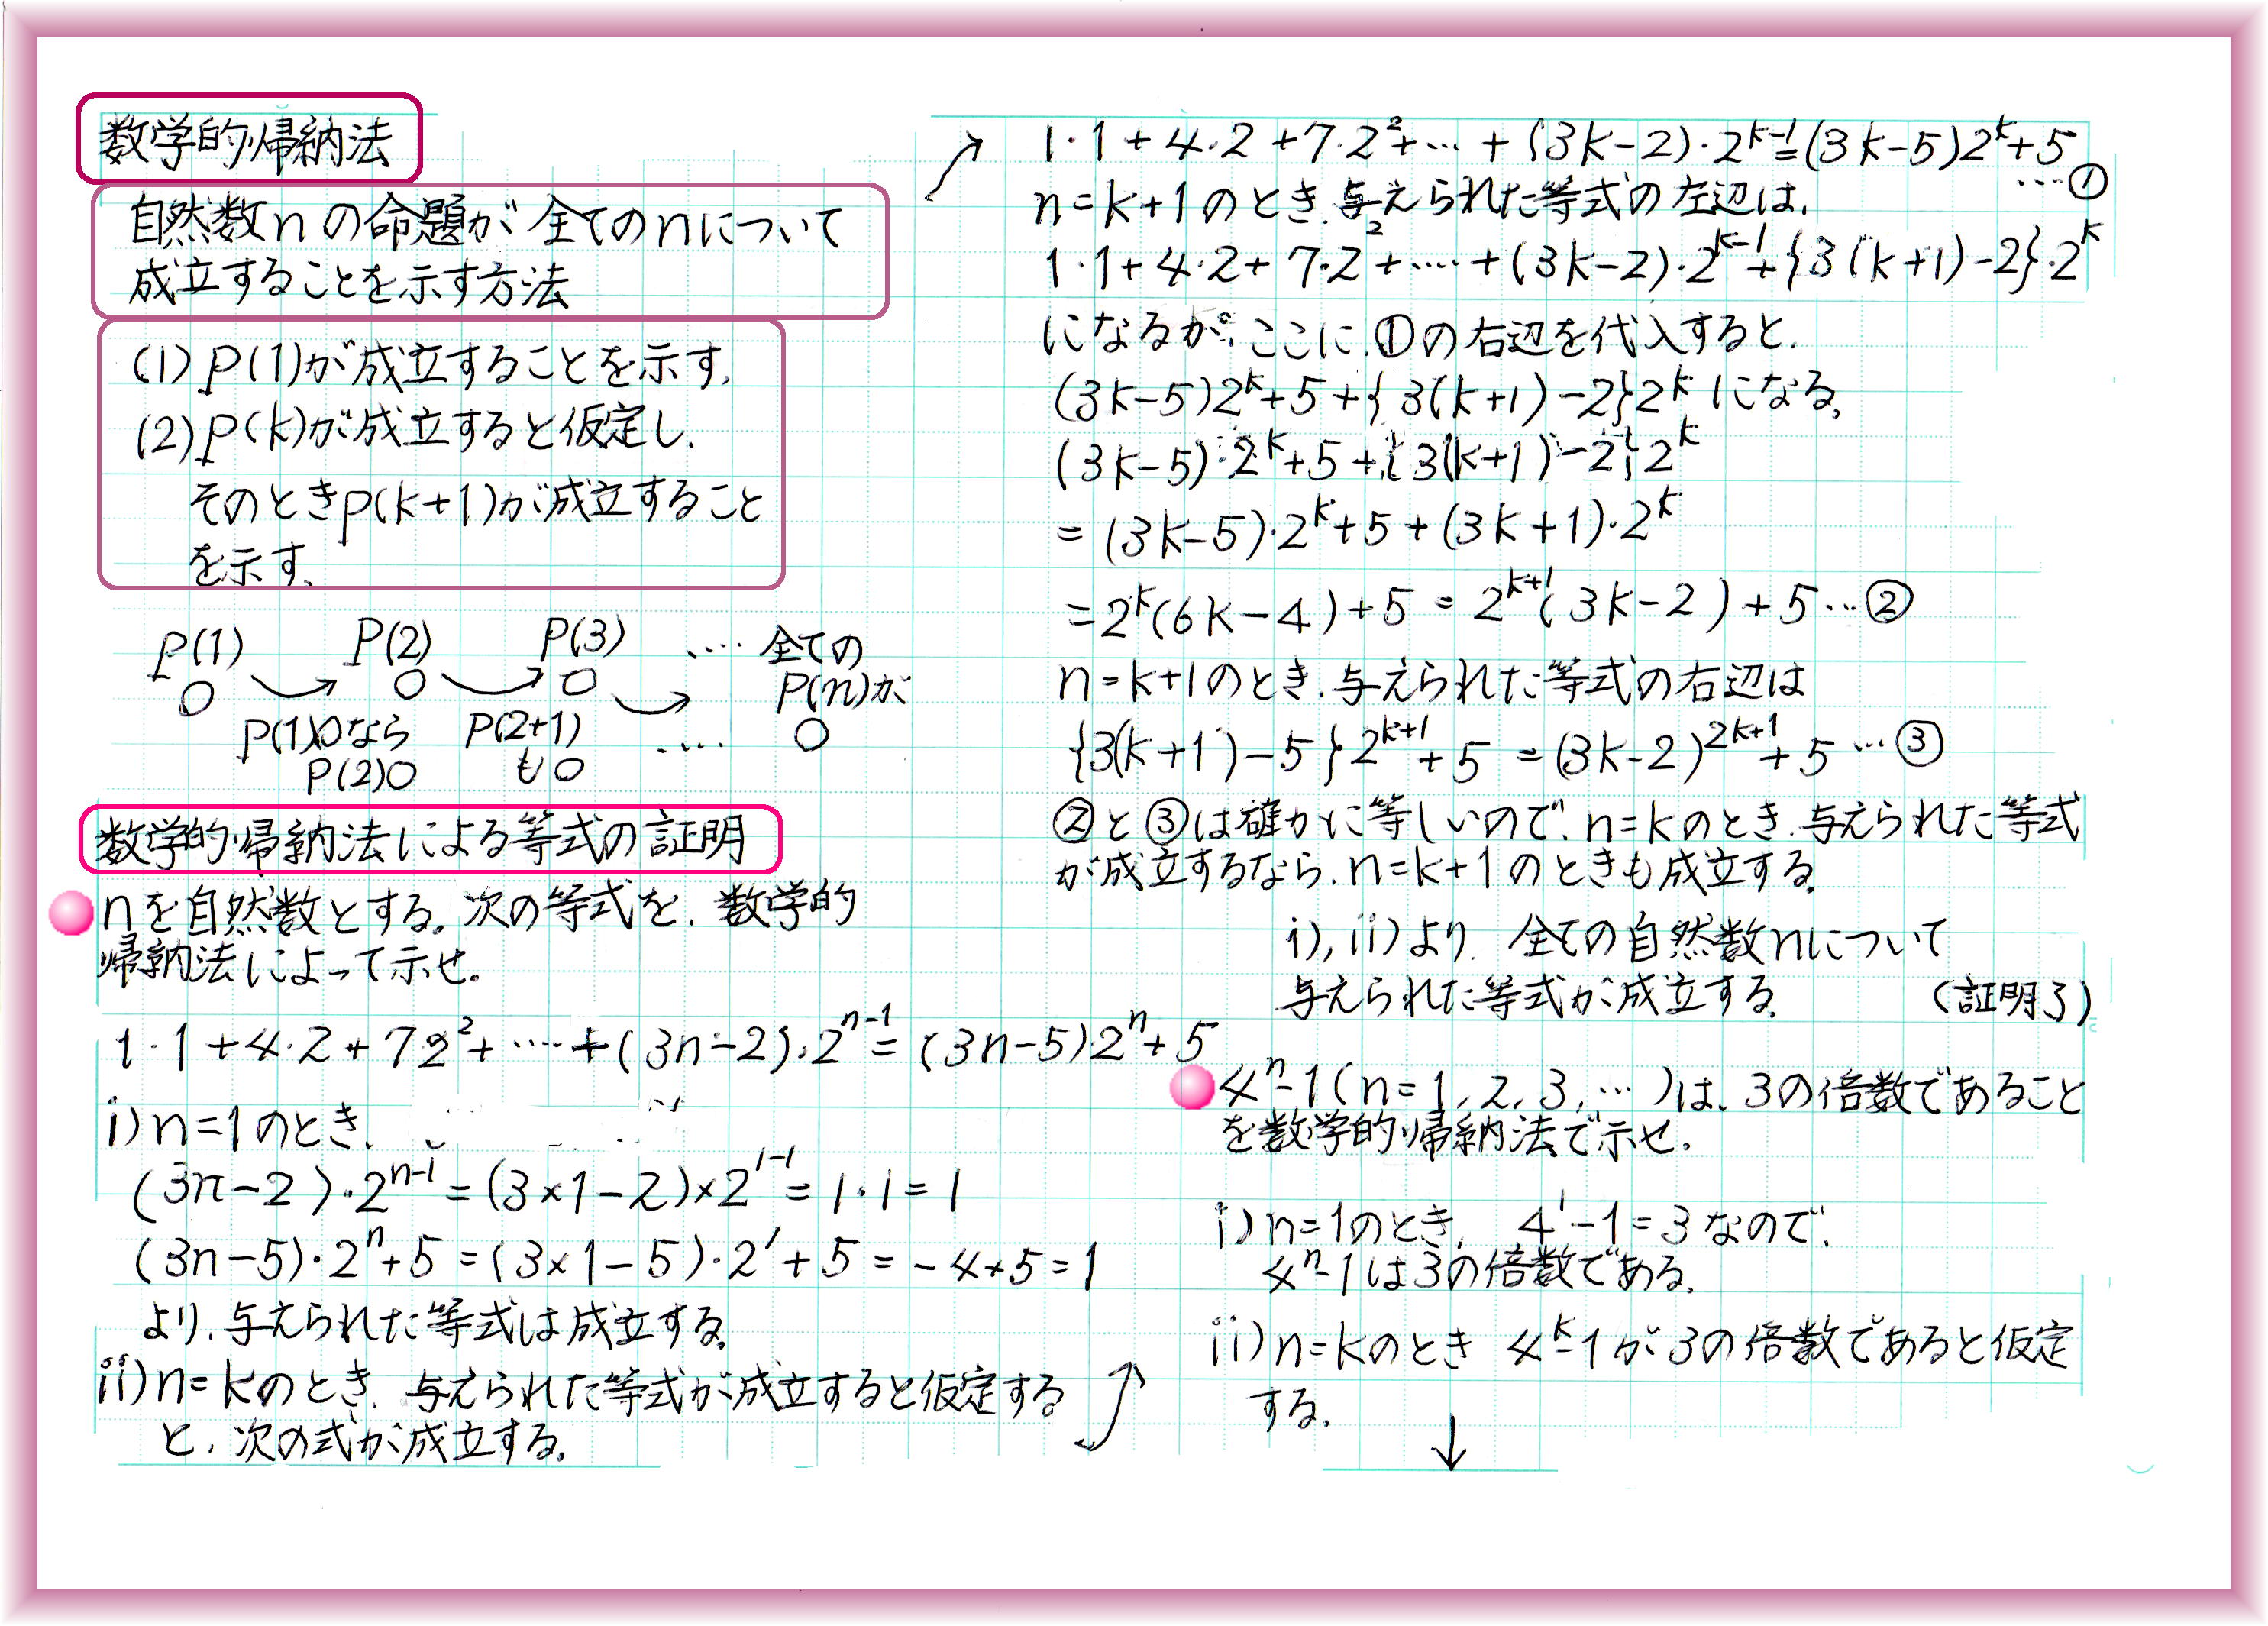 数学的帰納法
自然数nの命題が全てのnについて
成立することを示す方法
(1)P(1)が成立することを示す.
(2)P(k)が成立すると仮定し.
そのときP(k+1)が成立すること
を示す.
P(1) P(2) P(3) ‥‥ 全ての
○ ○ ○ P(n)が
P(1)○なら P(2+1) ‥‥ ○
P(2)○ も○
数学的帰納法による等式の証明
nを自然数とする。次の等式を、数学的
帰納法によって示せ。
1・1+4・2+7 2²+‥‥+(3n-2)・2ⁿ⁻¹=(3n-5)・2ⁿ+5
i)n=1のとき、
(3n-2)・2ⁿ⁻¹=(3×1-2)×2¹⁻¹=1・1=1
(3n-5)・2ⁿ+5=(3×1-5)・2¹+5=-4+5=1
より、与えられた等式は成立する。
ii)n=kのとき、与えられた等式が成立すると仮定する
と、次の式が成立する。
1・1+4・2+7・2²+…+(3k-2)・2ᵏ⁻¹=(3k-5)2ᵏ+5
…①
n=k+1のとき、与えられた等式の左辺は、
1・1+4・2+7・2²+‥‥+(3k-2)・2ᵏ⁻¹+{3(k+1)-2}・2ᵏ
になるが、ここに、①の右辺を代入すると、
(3k-5)2ᵏ+5+{3(k+1)-2}2ᵏになる。
(3k-5)・2ᵏ+5+{3(k+1)-2}2ᵏ
=(3k-5)・2ᵏ+5+(3k+1)・2ᵏ
=2ᵏ(6k-4)+5=2ᵏ⁺¹(3k-2)+5…②
n=k+1のとき、与えられた等式の右辺は
{3(k+1)-5}2ᵏ⁺¹+5=(3k-2)²ᵏ⁺¹+5…③
②と③は確かに等しいので、n=kのとき、与えられた等式
が成立するなら、n=k+1のときも成立する。
i),ii)より、全ての自然数nについて
与えられた等式が成立する。 (証明了)
4ⁿ-1(n=1,2,3,…)は、3の倍数であること
を数学的帰納法で示せ。
i)n=1のとき、4¹-1=3なので、
4ⁿ-1は3の倍数である。
ii)n=kのとき 4ᵏ-1が3の倍数であると仮定
する。